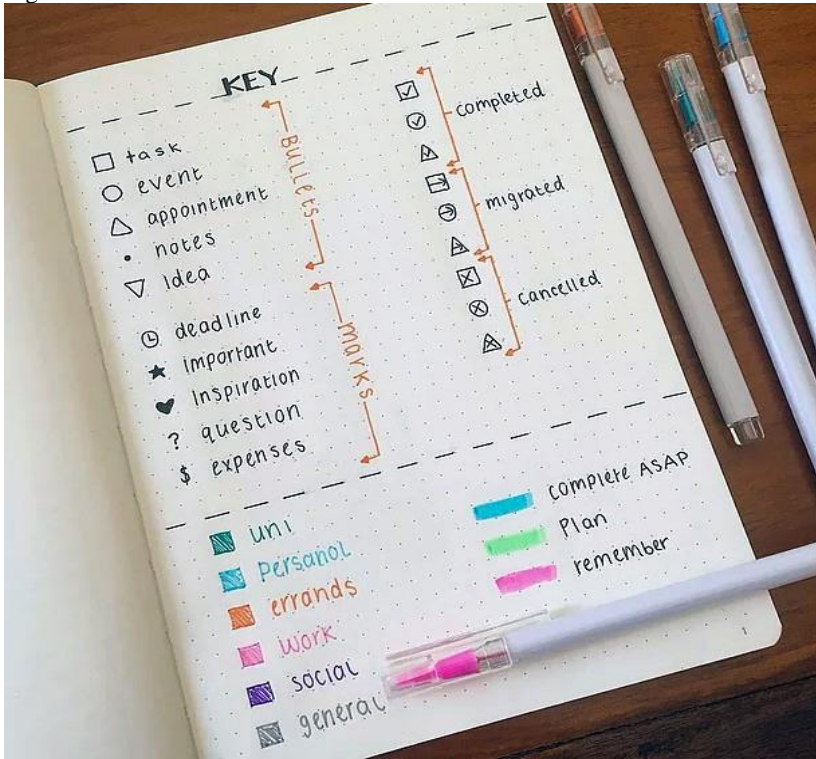 KEY
task
event
appointment
notes
Idea
Bullets
deadline
important
Inspiration
? question
$ expenses
marks
completed
migrated
cancelled
uni
Persanol
errands
work
social
general
complete ASAP
Plan
remember
1